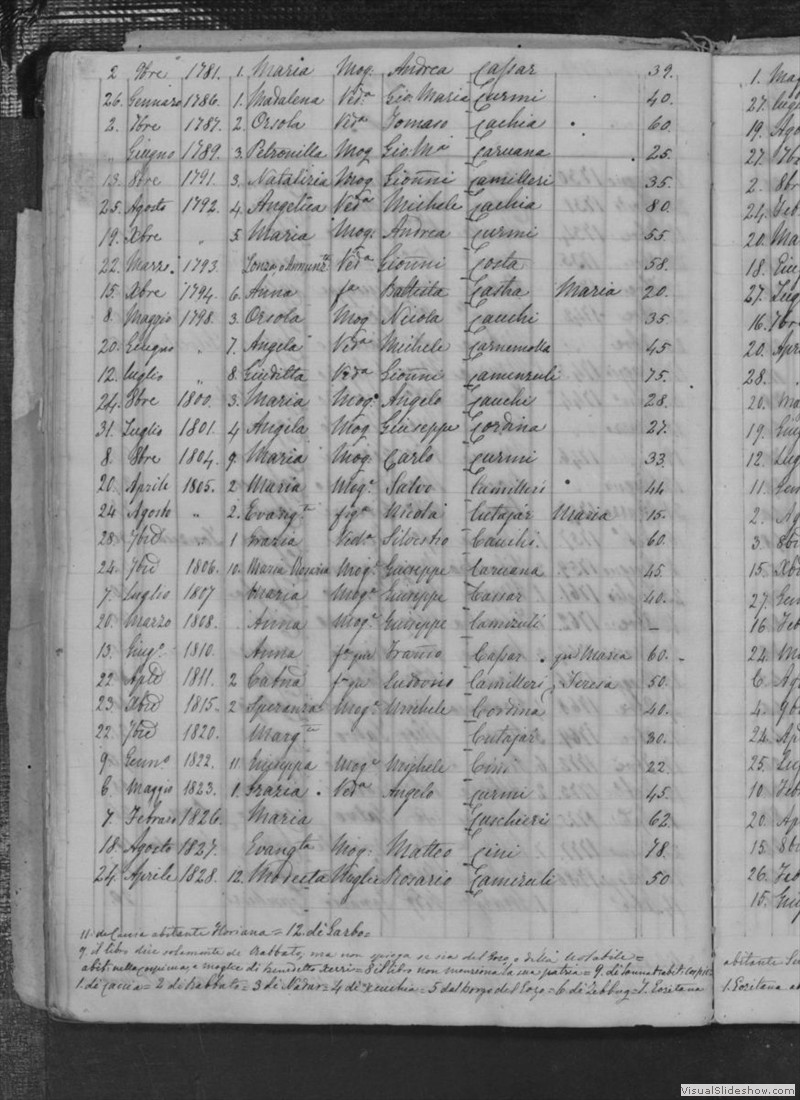 2 9bre 1781. 1. Maria Mog: Andrea Cassar 39.
26. Gennaro 1786. 1. Madalena Ved.a Gio Maria Curmi 40.
2. 7bre 1787. 2. Orsola Ved.a Tomaso Cachia 60.
„ Giugno 1789. 3. Petronilla Mog Gio Ma Caruana 25.
13. 8bre 1791. 3. Natalizia Mog Gionni Camilleri 35.
25. Agosto 1792. 4. Angelica Ved.a Michele Cachia 80.
19. Xbre „ 5 Maria Mog: Andrea Curmi 55.
22. Marzo. 1793. Ved.a Gionni Costa 58.
15. Xbre 1794. 6. Anna fa Battista Castra Maria 20.
8. Maggio 1798. 3. Orsola Mog Nicola Cauchi 35
20. Giugno „ 7. Angela Ved.a Michele Carnemolla 45
12. Luglio „ 8. Giuditta Ved.a Gionni Camenzuli 75.
24. 8bre 1800. 3. Maria Mog.e Angelo Cauchi 28.
31. Luglio 1801. 4 Angela Mog Giuseppe Cordina 27.
8. 8bre 1804. 9. Maria Mog Carlo Curmi 33.
20. Aprile 1805. 2 Maria Mog.e Salvo Camilleri 44
24 Agosto „ 2. Evang.ta fig.a Nicola Cutajar Maria 15.
28. 7bre „ 1 Grazia Ved.a Silvestro Cauchi. 60.
24. 7bre 1806. 10. Maria Rosaria Mog.e Giuseppe Caruana 45.
7. Luglio 1807 Maria Mog.e Giuseppe Cassar 40.
20. Marzo 1808. Anna Mog.e Giuseppe Camizuli —
13. Giug.o 1810. Anna fa qm Franco Cassar. qm Maria 60.
22 Aple 1811. 2 Catna fa qm Ludovico Camilleri Teresa 50.
23 Xbre 1815. 2 Speranza Mog.e Michele Cordina 40.
22. 7bre 1820. Marg.ta Cutajar 30.
9. Genno 1822. 11 Giuseppa Mog.e Michele Cini 22.
6. Maggio 1823. 1. Grazia. Ved.a Angelo Curmi 45.
7 Febraro 1826. Maria Cuschieri 62.
18. Agosto 1827. Evang.ta Mog: Matteo Cini 78.
24. Aprile 1828. 12. Modesta Moglie Rosario Camizuli 50
11. di Caccia abitante Floriana = 12. di Garbo =
7. il libro dice solamente de Rabbato, ma non spiega se sia del Gozo, o della Notabile =
moglie di Benedetto Xerri = 8. il libro non menziona la sua patria = 9. di Sannat
1. di Caccia = 2 di Rabbato = 3 di Nadur = 4 di Xeuchia = 5 dal Borgo del Gozo = 6 di Zebbug = 1. Gozitana
1. Mag
27.
19. Ago
27. 7b
2. 8br
24. Feb
20. Ma
18. Giu
27. Lug
16. 7br
20. Apr
28.
20. Ma
19. Giu
12. Lug
11. Gen
2. Ag
3. 8b
15. Xb
27. Gen
16 Feb
24. Ma
6. Ag
4. 9b
24. Ap
25. Lug
10 Feb
20. Ap
15. 8b
26. Fe
15. Giu
abitante
1. Gozitana
VisualSlideshow.com